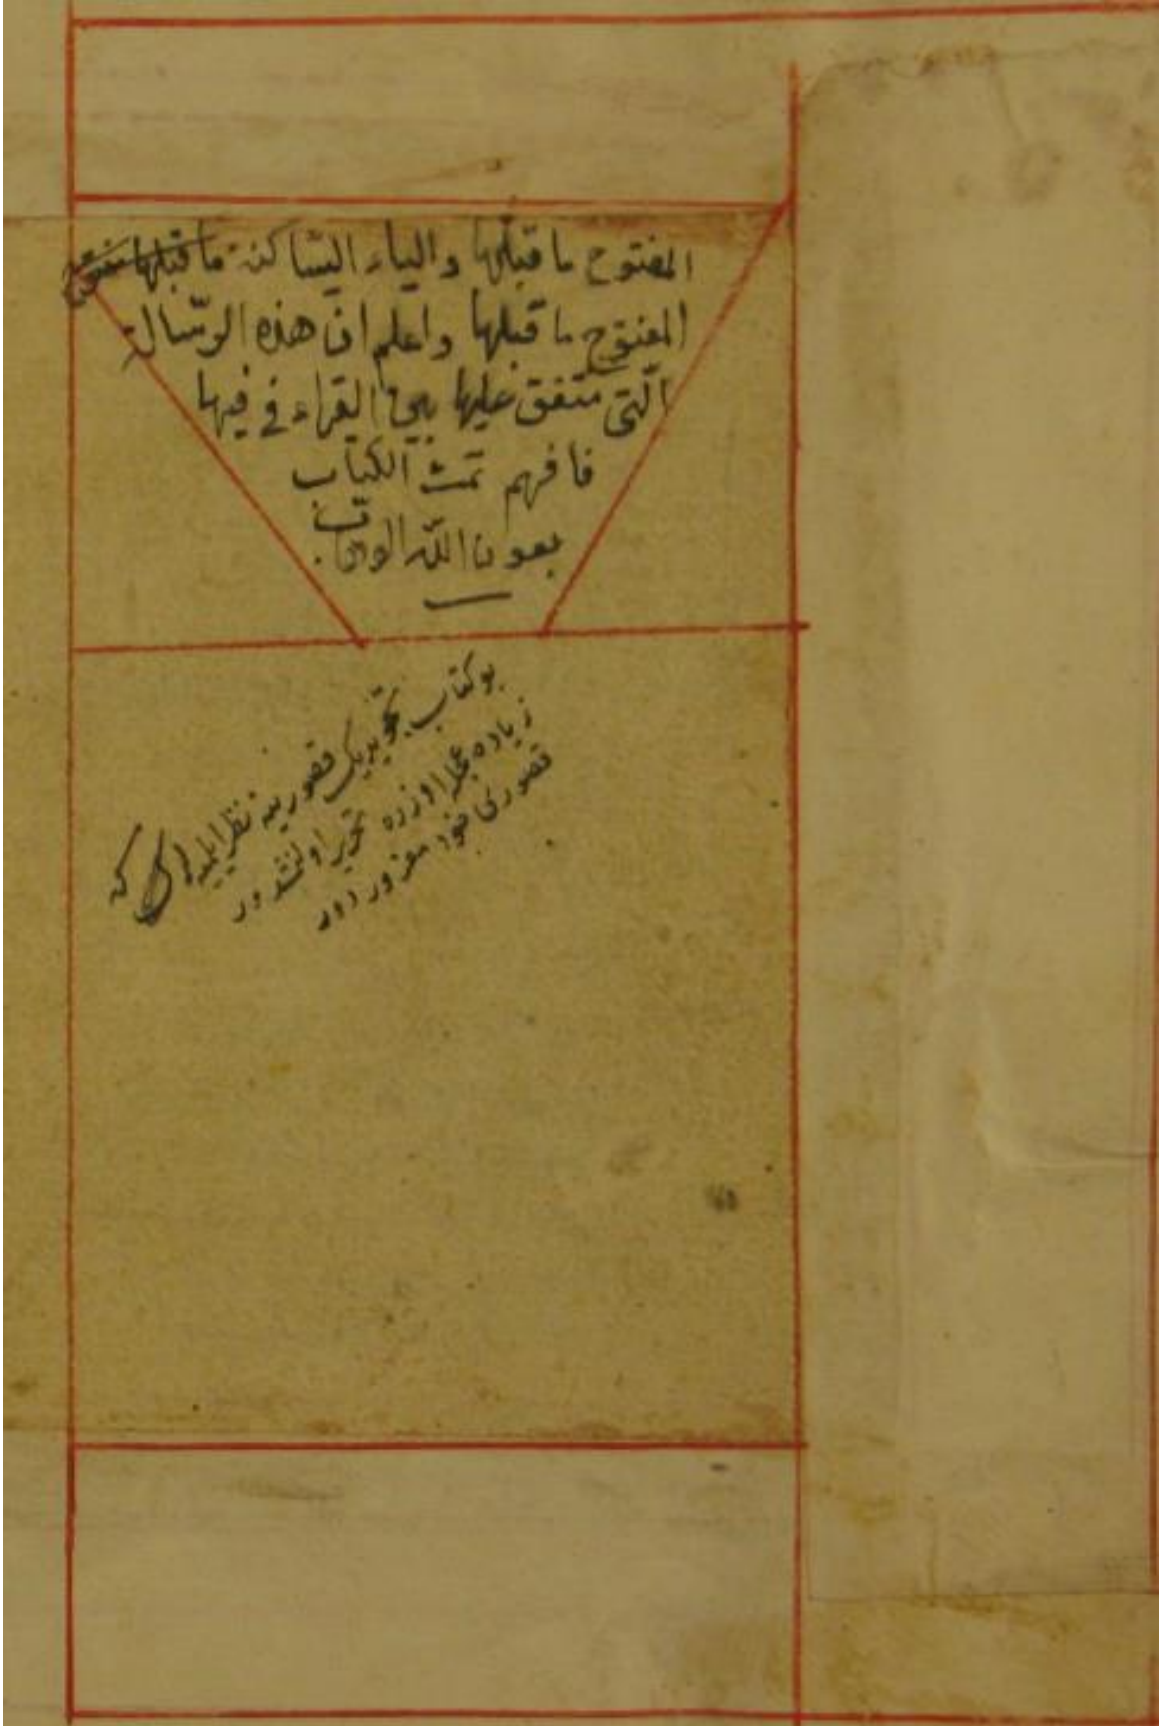 المفتوح ما قبلها والياء الساكنة ما قبلها مفتوح
المفتوح ما قبلها واعلم ان هذه الرسالة
الّتى متفق عليها بين القراء فى فيها
فافهم تمت الكتاب
بعون الله الوهّاب
بو كتاب تجويديك قصورينه نظر ايليه كه
زياده عجله اوزره تحرير اولنمشدور
قصورى معذور در